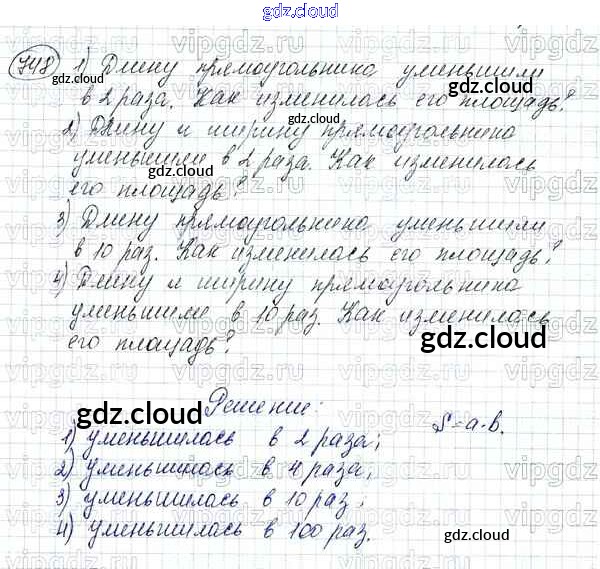 gdz.cloud
748 1) Длину прямоугольника уменьшили
gdz.cloud
в 2 раза. Как изменилась его площадь?
2) Длину и ширину прямоугольника
gdz.cloud
уменьшили в 2 раза. Как изменилась
его площадь?
gdz.cloud
3) Длину прямоугольника уменьшили
в 10 раз. Как изменилась его площадь?
gdz.cloud
4) Длину и ширину прямоугольника
уменьшили в 10 раз. Как изменилась
его площадь?
gdz.cloud
Решение:
gdz.cloud
S=a·b.
1) уменьшилась в 2 раза;
2) уменьшилась в 4 раза;
3) уменьшилась в 10 раз;
4) уменьшилась в 100 раз.
gdz.cloud